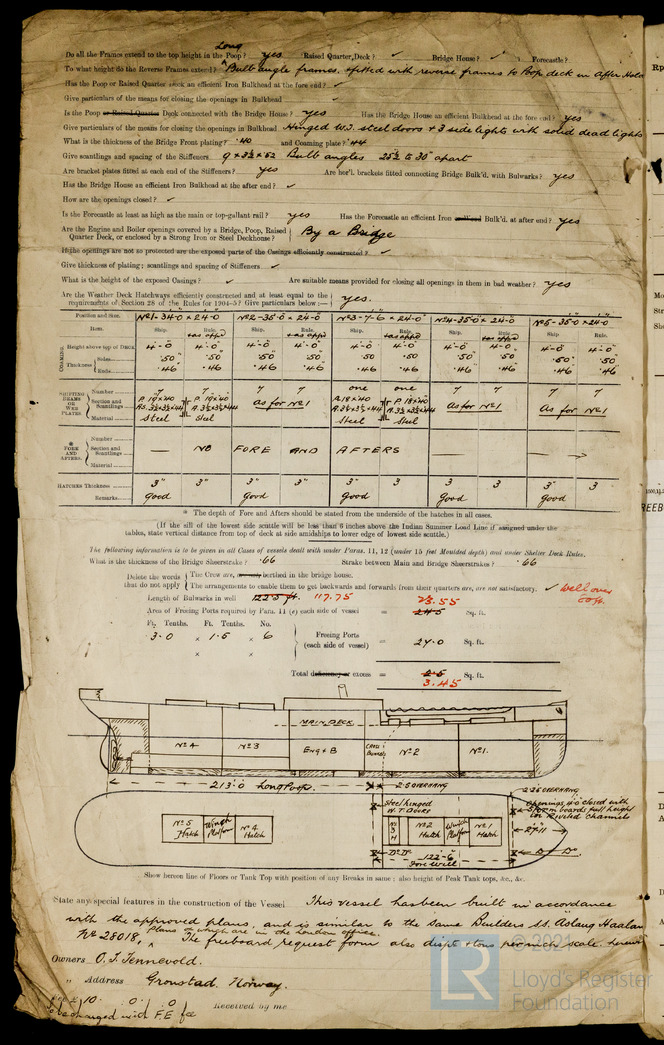 Do all the Frames extend to the top height in the Long Poop? yes Raised Quarter Deck? ✓ Bridge House? ✓ Forecastle?
To what height do the Reverse Frames extend? Bulb angle frames. fitted with reverse frames to Poop deck in After Hold
Has the Poop or Raised Quarter Deck an efficient Iron Bulkhead at the fore end? ✓
Give particulars of the means for closing the openings in Bulkhead ✓
Is the Poop or Raised Quarter Deck connected with the Bridge House? yes Has the Bridge House an efficient Bulkhead at the fore end? yes
Give particulars of the means for closing the openings in Bulkhead Hinged W.T. steel doors + 3 side lights with solid dead lights
What is the thickness of the Bridge Front plating? .40 and Coaming plate? .44
Give scantlings and spacing of the Stiffeners 9 x 3½ x 52 Bulb angles 25½ to 30" apart
Are bracket plates fitted at each end of the Stiffeners? yes Are hor'l. brackets fitted connecting Bridge Bulk'd. with Bulwarks? yes
Has the Bridge House an efficient Iron Bulkhead at the after end? ✓
How are the openings closed? ✓
Is the Forecastle at least as high as the main or top-gallant rail? yes Has the Forecastle an efficient Iron or Wood Bulk'd. at after end? yes
Are the Engine and Boiler openings covered by a Bridge, Poop, Raised
Quarter Deck, or enclosed by a Strong Iron or Steel Deckhouse? By a Bridge
If the openings are not so protected are the exposed parts of the Casings efficiently constructed? ✓
Give thickness of plating; scantlings and spacing of Stiffeners ✓
What is the height of the exposed Casings? ✓ Are suitable means provided for closing all openings in them in bad weather? yes
Are the Weather Deck Hatchways efficiently constructed and at least equal to the
requirements of Section 28 of the Rules for 1904-5? Give particulars below:— yes.
Position and Size. No1-34-0 x 24-0 No2-35-0 x 24-0 No3-7-6 x 24-0 No4-35-0 x 24-0 No5-35-0 x 24-0
Item. Ship. Rule. + as app'd Ship. Rule. + as app'd Ship. Rule. + as app'd Ship. Rule. + as app'd Ship. Rule.
COAMING Height above top of Deck 4'-0 4'-0 4'-0 4'-0 4'-0 4'-0 4'-0 4'-0 4'-0 4'-0
Thickness Sides .50 .50 .50 .50 .50 .50 .50 .50 .50 .50
Ends .46 .46 .46 .46 .46 .46 .46 .46 .46 .46
SHIFTING BEAMS OR WEB PLATES Number 7 7 7 7 one one 7 7 7 7
Section and Scantlings As for No1 As for No1 As for No1
Material Steel Steel Steel Steel
* FORE AND AFTERS. Number
Section and Scantlings — NO FORE AND AFTERS —
Material
HATCHES Thickness 3" 3" 3" 3" 3" 3 3 3 3" 3
Remarks. Good Good Good Good Good
* The depth of Fore and Afters should be stated from the underside of the hatches in all cases.
(If the sill of the lowest side scuttle will be less than 6 inches above the Indian Summer Load Line if assigned under the
tables, state vertical distance from top of deck at side amidships to lower edge of lowest side scuttle.)
The following information is to be given in all Cases of vessels dealt with under Paras. 11, 12 (under 15 feet Moulded depth) and under Shelter Deck Rules.
What is the thickness of the Bridge Sheerstrake? .66 Strake between Main and Bridge Sheerstrakes? .66
Delete the words The Crew are, are not, berthed in the bridge house.
that do not apply The arrangements to enable them to get backwards and forwards from their quarters are, are not satisfactory. ✓ Well over
Length of Bulwarks in well 122.5 ft. 117.75
23.55
Area of Freeing Ports required by Para. 11 (e) each side of vessel = 24.5 Sq. ft.
Ft. Tenths. Ft. Tenths. No.
3.0 x 1.5 x 6 Freeing Ports (each side of vessel) = 27.0 Sq. ft.
x x
Total deficiency or excess = 2.5 Sq. ft.
3.45
MAIN DECK
No 4 No 3 Eng + B Cross Bunker No 2 No 1.
213.0 Long Poop. 2.5 OVERHANG
2.25 OVERHANG
Steel hinged W.T. Doors
Openings 4'0 closed with boards full height in riveted channels
No 5 Hatch Winch Platform No 4 Hatch No 3 H No 2 Hatch Winch Platform No 1 Hatch
27'11
Do Do Do Do
122'-6" Fore Well
Show hereon line of Floors or Tank Top with position of any Breaks in same; also height of Peak Tank tops, &c., &c.
State any special features in the construction of the Vessel This vessel has been built in accordance
with the approved plans, and is similar to the same Builders ss. Aslaug Haaland
No 28018, plans of which are in the London office. The freeboard request form also displ + tons per inch scale herewith
Owners O. T. Tennevold.
" Address Gronstad. Norway.
Fee £ 10. 0. 0 Received by me
to be charged with F.E fee
© 2021
LR
Lloyd's Register
Foundation